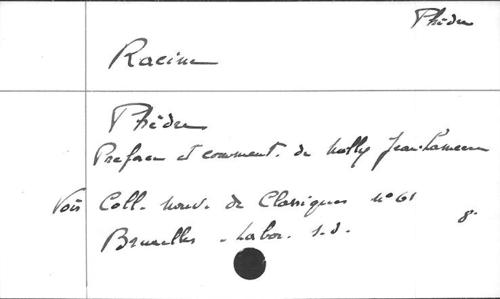 Phèdre
Racine
Phèdre
Préface et comment. de Nelly Jean-Lameere
Voir Coll. nouv. de Classiques n° 61
8°
Bruxelles - Labor. s.d.